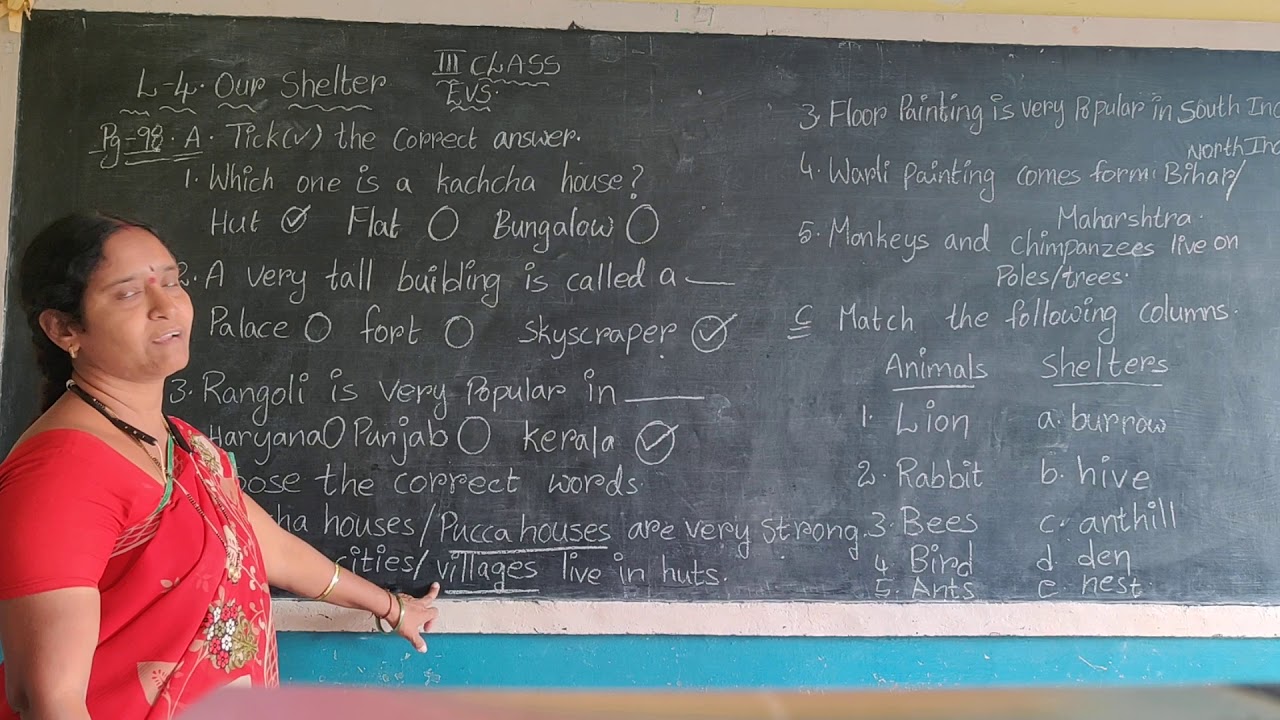 III CLASS
L-4. Our Shelter
EVS.
Pg-98. A. Tick(✓) the correct answer.
1. Which one is a kachcha house?
Hut Flat Bungalow
2. A very tall builbing is called a
Palace fort Skyscraper
3. Rangoli is very Popular in
Haryana Punjab kerala
the correct words
houses/Pucca houses are very strong.
cities/villages live in huts.
3. Floor Painting is very Popular in South
North
4. Warli painting comes form: Bihar/
Maharshtra.
5. Monkeys and chimpanzees live on
Poles/trees.
C Match the following columns.
Animals Shelters
1. Lion a. burrow
2. Rabbit b. hive
3. Bees c. anthill
4 Bird d den
5. Ants e. nest.